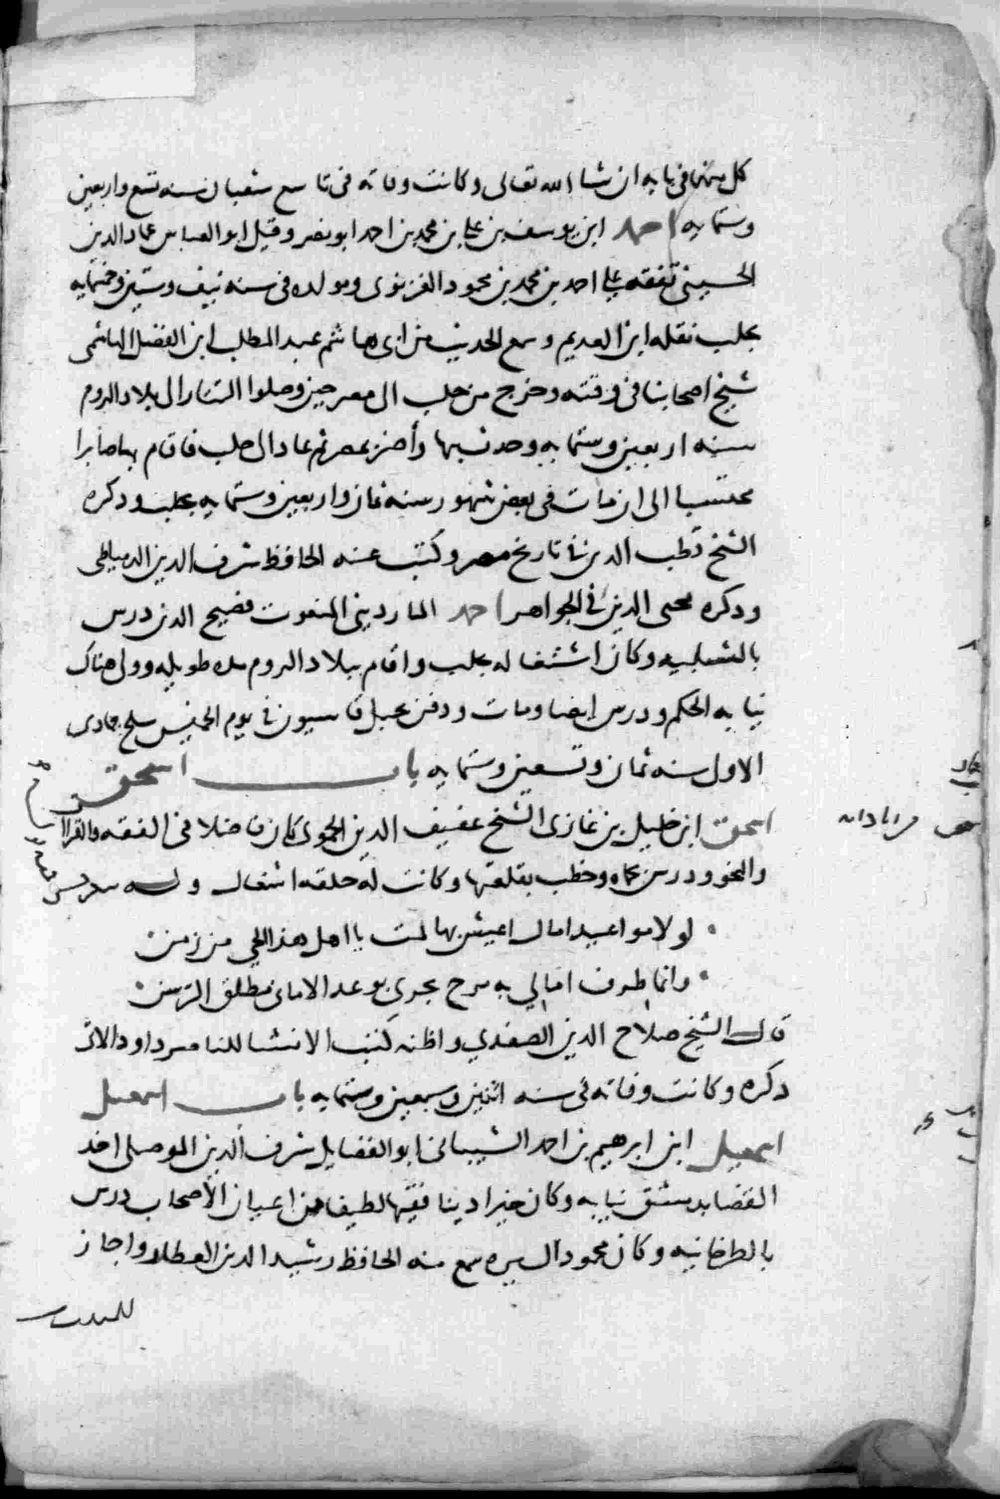 كل منهما في بابه ان شا الله تعالى وكانت وفاته في تاسع شعبان سنه تسع واربعين
وستمايه احمد ابن يوسف بن علي بن محمد بن احمد ابو نصر وقيل ابو العباس عماد الدين
الحسيني تفقه علي احمد بن محمد بن محمود الغزنوي ومولده في سنه نيف وستين وخمسمايه
بحلب نقله ابن العديم وسمع الحديث من ابي هاشم عبد المطلب ابن الفضل الهاشمي
شيخ اصحابنا في وقته وخرج من حلب الى مصر حين وصلوا التتار الى بلاد الروم
سنه اربعين وستمايه وحدث بها وأضر بمصر ثم عاد الى حلب فاقام بها صابرا
محتسبا الى ان مات في بعض شهور سنه ثمان واربعين وستمايه بحلب وذكره
الشخ قطب الدين في تاريخ مصر وكتب عنه الحافظ شرف الدين الدمياطي
وذكره محيى الدين في الجواهر احمد الماردينى المنعوت فصيح الدين درس
بالشبليه وكان اشتغاله بحلب واقام ببلاد الروم مده طويله وولى هناك
نيابه الحكم ودرس ايضا ومات ودفن بجبل قاسيون في يوم الخميس سلخ جمادى
الاول سنه ثمان وتسعين وستمايه باب اسحق
اسحق ابن خليل بن غازى الشخ عفيف الدين الحموى كان فاضلا فى الفقه والقراا
والنحو ودرس بحماه وخطب بقلعتها وكانت له حلقه اشغال وله
لولا مواعيد امال اعيش بها لمت يا اهل هذا الحي من زمن
وانما طرف امالي به مرح يجري بوعد الاماني مطلق الرسن
قال الشيخ صلاح الدين الصفدي واظنه كتب الانشا للناصر داود الاتى
ذكره وكانت وفاته فى سنه اثنين وسبعين وستمايه باب اسمعيل
اسمعيل ابن ابرهيم بن احمد الشيبانى ابو الفضايل شرف الدين الموصلى احد
القضا بدمشق نيابه وكان خيرا دينا فقيها لطيفا من اعيان الاصحاب درس
بالطرخانيه وكان محمود السيره سمع منه الحافظ رشيد الدين العطار واجاز